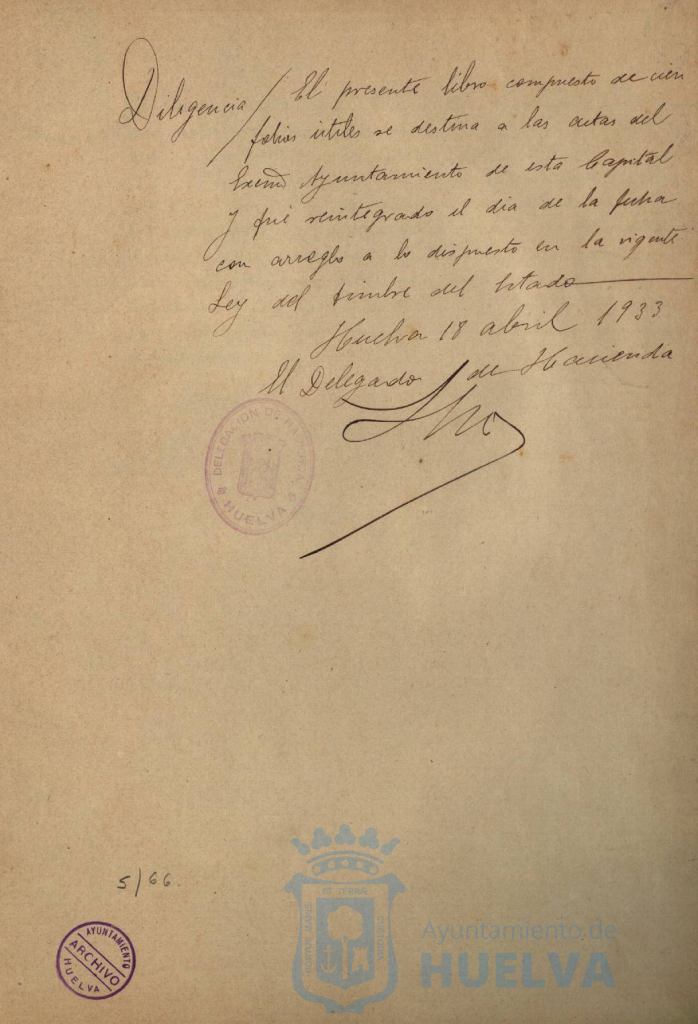 Diligencia / El presente libro compuesto de cien
folios útiles se destina a las actas del
Excmo Ayuntamiento de esta Capital
y fué reintegrado el dia de la fecha
con arreglo a lo dispuesto en la vigente
Ley del timbre del Estado
Huelva 18 abril 1933
El Delegado de Hacienda
DELEGACION DE HACIENDA
HUELVA
5/66.
AYUNTAMIENTO
ARCHIVO
HUELVA
PORTUS MARIS
ET TERRAE
CUSTODIA
Ayuntamiento de
HUELVA